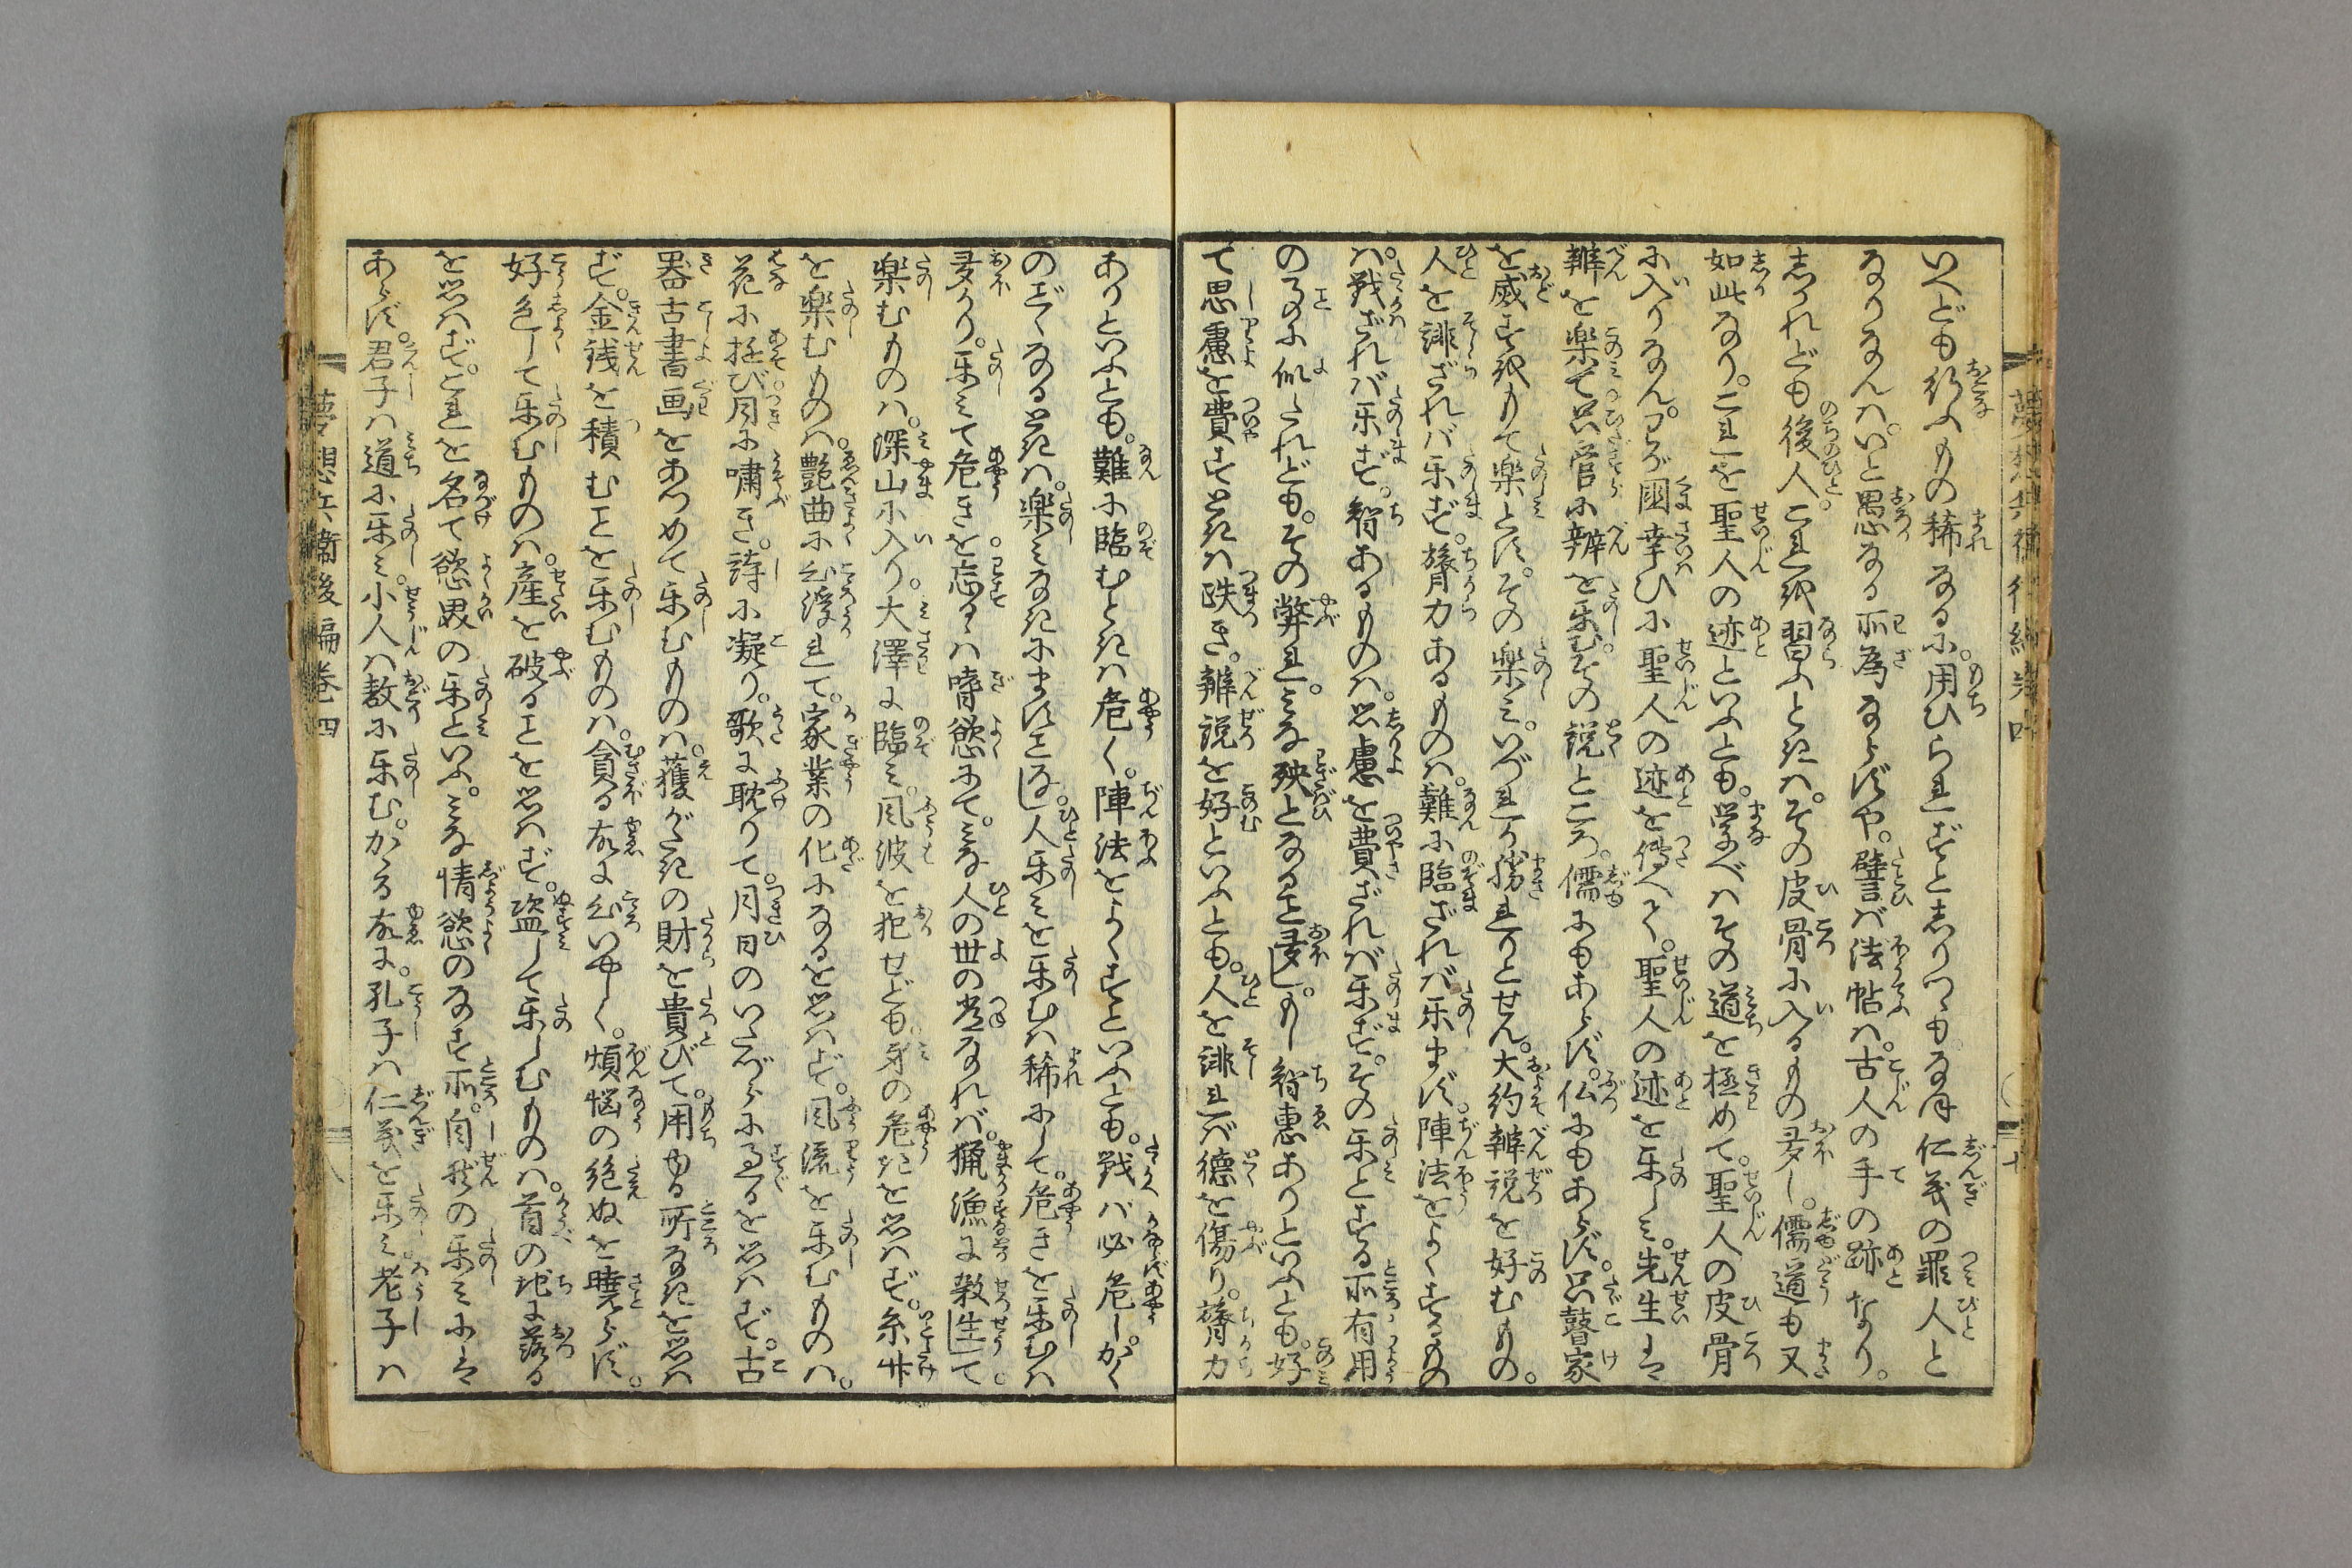 いへども行ふもの稀なるに。用ひられずとしりつゝもなほ仁義の罪人と
なりなんは。いと愚なる所為ならずや。譬ば法帖は。古人の手の跡なり。
しかれども後人これを習ふときは。その皮骨に入るもの多し。儒道も又
如此なり。これを聖人の迹といふとも。学べはその道を極めて。聖人の皮骨
に入りなん。わが國幸ひに聖人の迹を傳へて。聖人の迹を楽しみ。先生は
辨を楽て只管に辨を楽む。その説ところ。儒にもあらず。仏にもあらず。只瞽家
を威すをもて楽とす。その楽み。いづれか勝れりとせん。大約辨説を好むもの。
人を誹ざれば楽ず。膂力あるものは。難に臨ざれば楽まず。陣法をよくするもの
は。戦ざれば楽ず。智あるものは。思慮を費ざれば楽ず。その楽とする所有用
の事に似たれども。その弊れ。みな殃となること多し。もし智恵ありといふとも。好
て思慮を費すときは跌き。辨説を好といふとも。人を誹れば徳を傷り。膂力
ありといふとも。難に臨むときは危く。陣法をよくすといふとも。戦へば必危し。かく
のごくなるときは。楽みなきにますことなし。人楽みを楽むは稀にして。危きを楽むは
多かり。楽みて危きを忘るゝは嗜慾にて。みな人の世の常なれば。猟漁に殺生して
楽むものは。深山に入り。大澤に臨み。風波を犯せども。身の危きを思はず。糸竹
を楽むものは。艶曲に心浮れて。家業の化になるを思はず。風流を楽むものは。
花に遊び。月に嘯き。詩に凝り。歌に耽りて。月日のいたづらに過るを思はず。古
器古書画をあつめて楽むものは。獲がたきの財を貴びて。用ゆる所なきを思は
ず。金銭を積むことを楽むものは。貪る故に心いやしく。煩悩の絶ぬを曉らず。
好色して楽むものは。産を破ることを思はず。盗して楽しむものは。首の地に落る
を思はず。これを名て慾界の楽といふ。みな情慾のなす所。自然の楽みには
あらず。君子は道に楽み。小人は敖に楽む。かゝる故に。孔子は仁義を楽み。老子は
夢想兵衛後編巻四